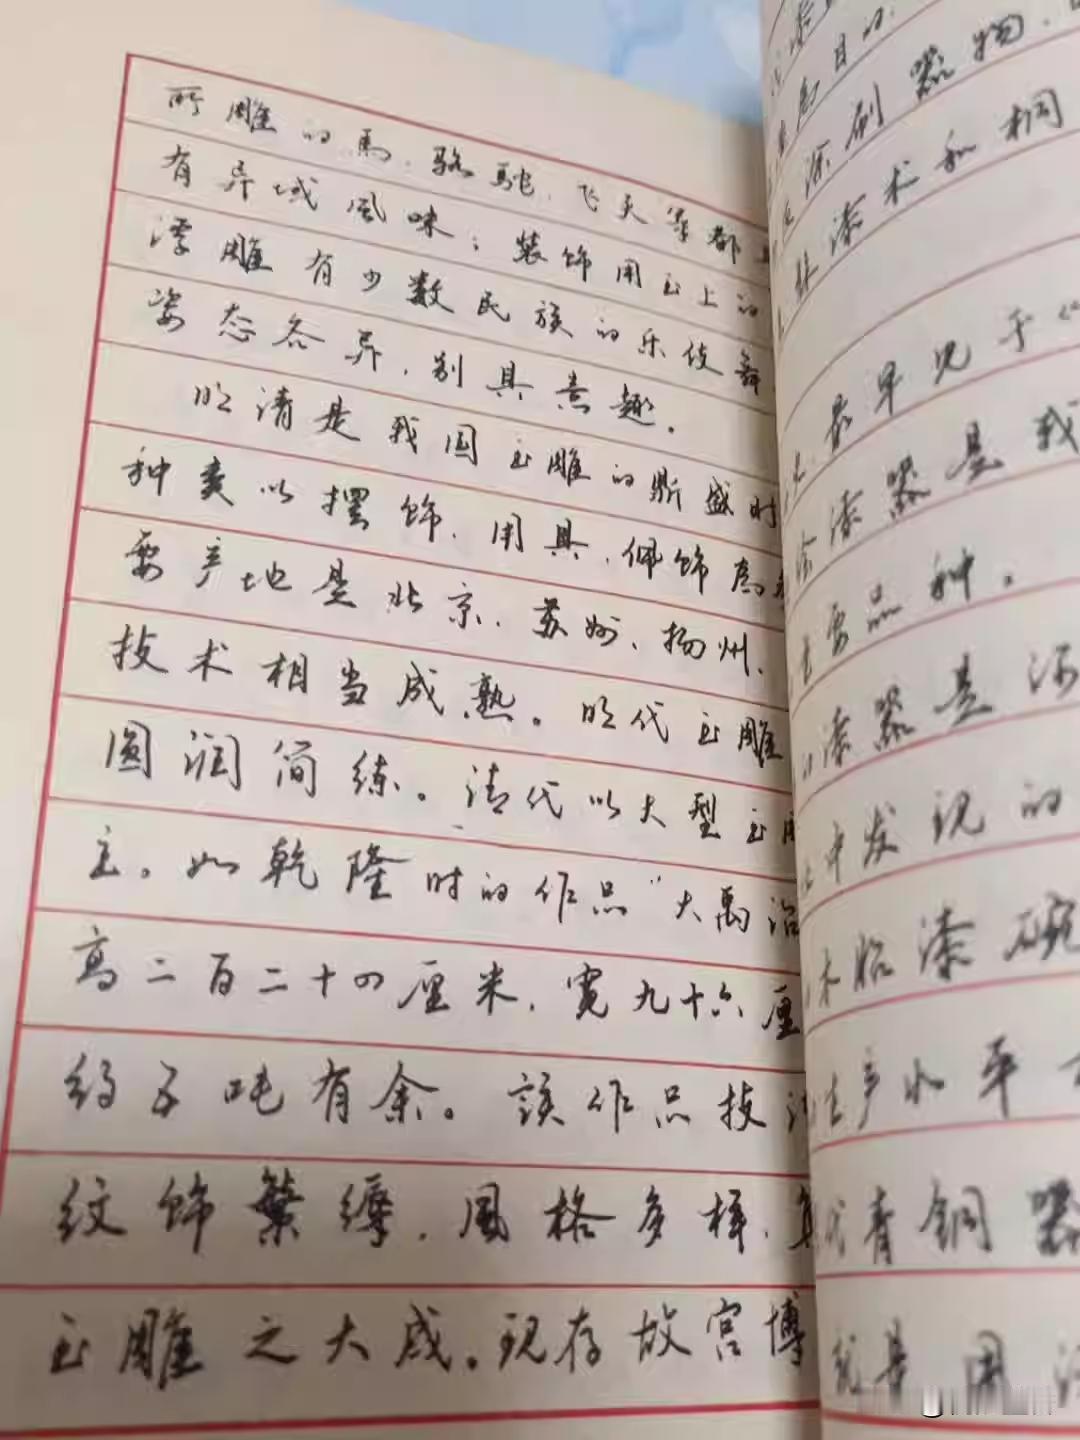 所雕的馬、骆驼、飞天等都
有异域風味；装饰用玉上的
浮雕有少数民族的乐伎舞
姿态各异，别具意趣。
明清是我国玉雕的鼎盛时
种类以摆饰、用具、佩饰為
要产地是北京、苏州、扬州、
技术相当成熟。明代玉雕
圆润简练。清代以大型玉雕
主。如乾隆时的作品“大禹治
高二百二十四厘米，宽九十六厘
约子吨有余。該作品技法
纹饰繁缛，風格多样，集
玉雕之大成。现存故宫博
漆
目的
漆刷器物
漆术和桐
最早见于《
漆器是我
要品种。
漆器是河
中发现的
木胎漆碗
生产水平
代青铜器
就是用